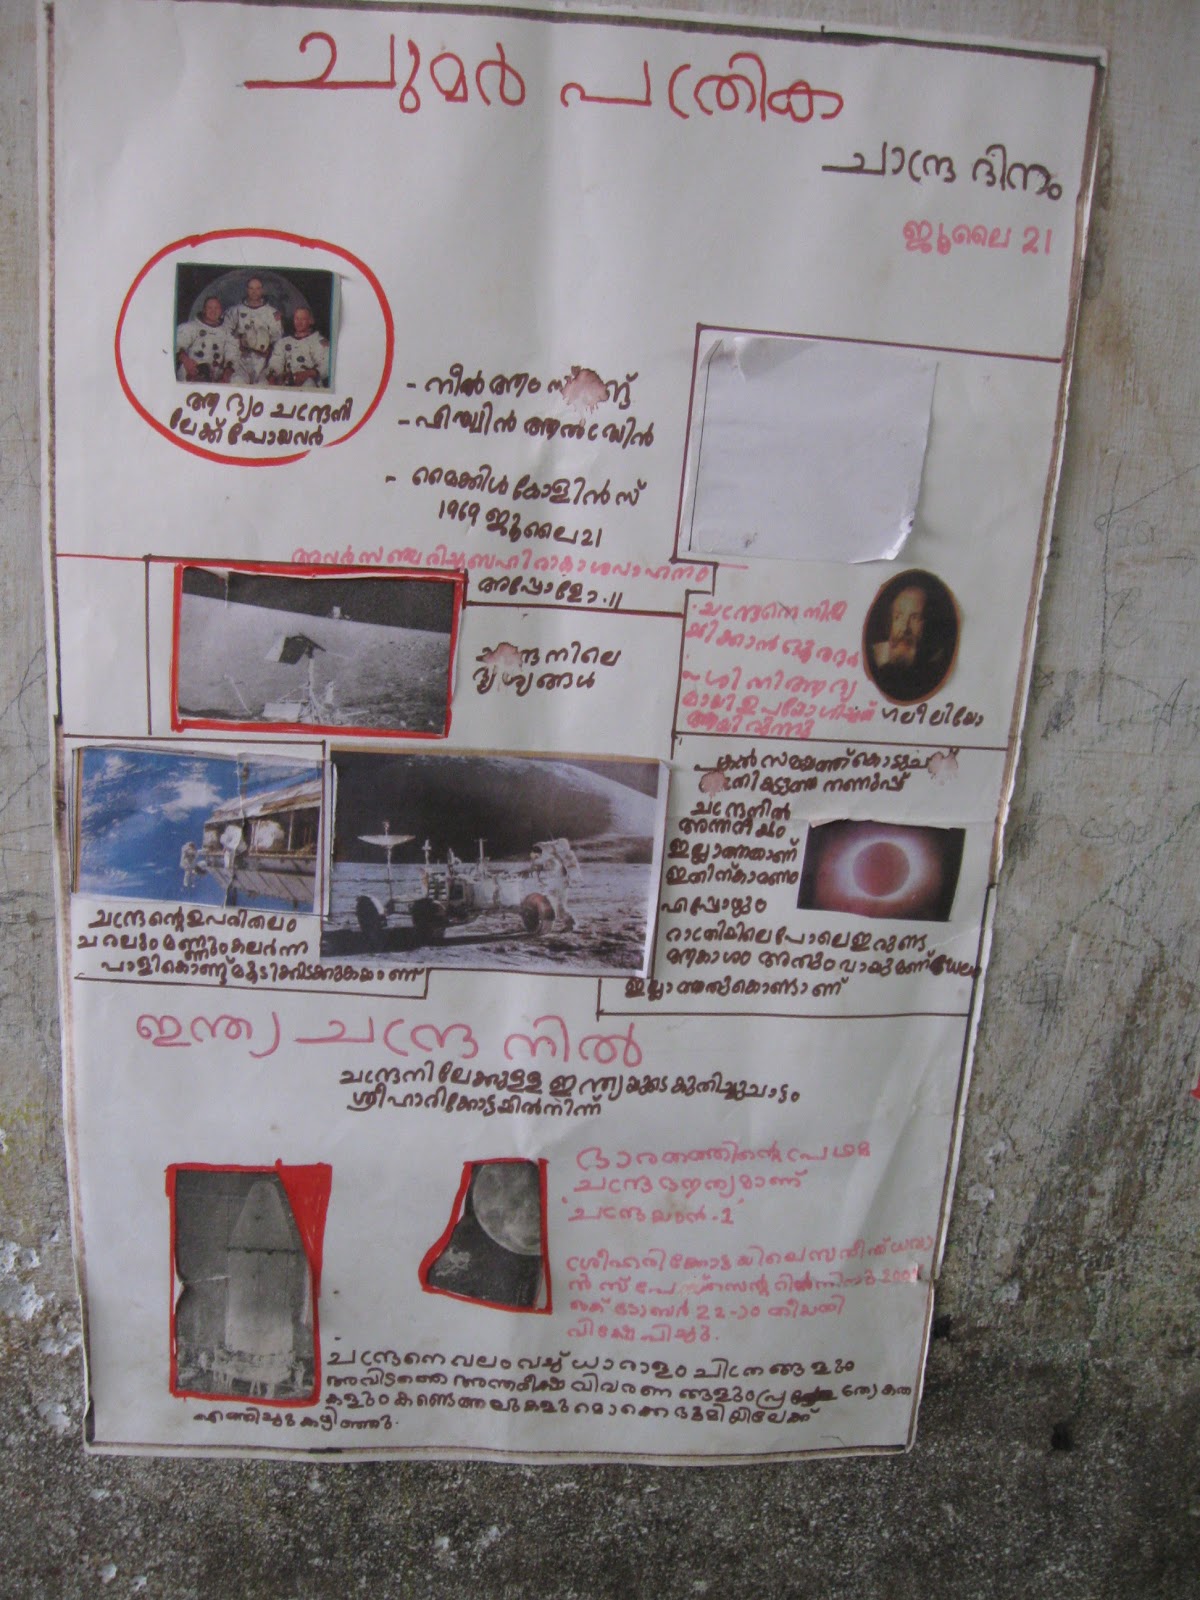 ചുമർ പത്രിക
ചാന്ദ്ര ദിനം
ജൂലൈ 21
ആദ്യം ചന്ദ്രനി
ലേക്ക് പോയവർ
- നീൽ ആം
- എഡ്വിൻ ആൽഡ്രിൻ
- മൈക്കിൾ കോളിൻസ്
1969 ജൂലൈ 21
അവർ സഞ്ചരിച്ച ബഹിരാകാശവാഹനം
അപ്പോളോ.11
ദൃശ്യങ്ങൾ
ചന്ദ്രനെ നിരീ
ക്ഷിക്കാൻ ദൂരദർ
ശിനി ആദ്യ
മായി ഉപയോഗിച്ചത്
ഗലീലിയോ
പകൽ സമയത്ത് കൊടും
തണുപ്പ്
ചന്ദ്രനിൽ
അന്തരീക്ഷം
ഇല്ലാത്തതാണ്
ഇതിന് കാരണം
എപ്പോഴും
രാത്രിയിലെ പോലെ ഇരുണ്ട
ആകാശം അതും വായുമണ്ഡലം
ഇല്ലാത്തതുകൊണ്ടാണ്
ചന്ദ്രന്റെ ഉപരിതലം
ചരലും മണ്ണും കലർന്ന
പാളികൊണ്ട് മൂടിക്കിടക്കുകയാണ്
ഇന്ത്യ ചന്ദ്രനിൽ
ചന്ദ്രനിലേക്കുള്ള ഇന്ത്യയുടെ കുതിച്ചുചാട്ടം
ശ്രീഹരിക്കോട്ടയിൽനിന്ന്
ഭാരതത്തിന്റെ പ്രഥമ
ചന്ദ്രദൗത്യമാണ്
'ചന്ദ്രയാൻ-1'
ശ്രീഹരിക്കോട്ടയിലെ സതീഷ് ധവാ
ൻ സ്പേസ് സെന്ററിൽനിന്നു
ഒക്ടോബർ 22-ാം തീയതി
വിക്ഷേപിച്ചു.
ചന്ദ്രനെ വലംവച്ച് ധാരാളം ചിത്രങ്ങളും
അവിടത്തെ അന്തരീക്ഷ വിവരണങ്ങളും പ്രത്യേകത
കളും കണ്ടെത്തലുകളുമൊക്കെ ഭൂമിയിലേക്ക്
എത്തിച്ചു കഴിഞ്ഞു.